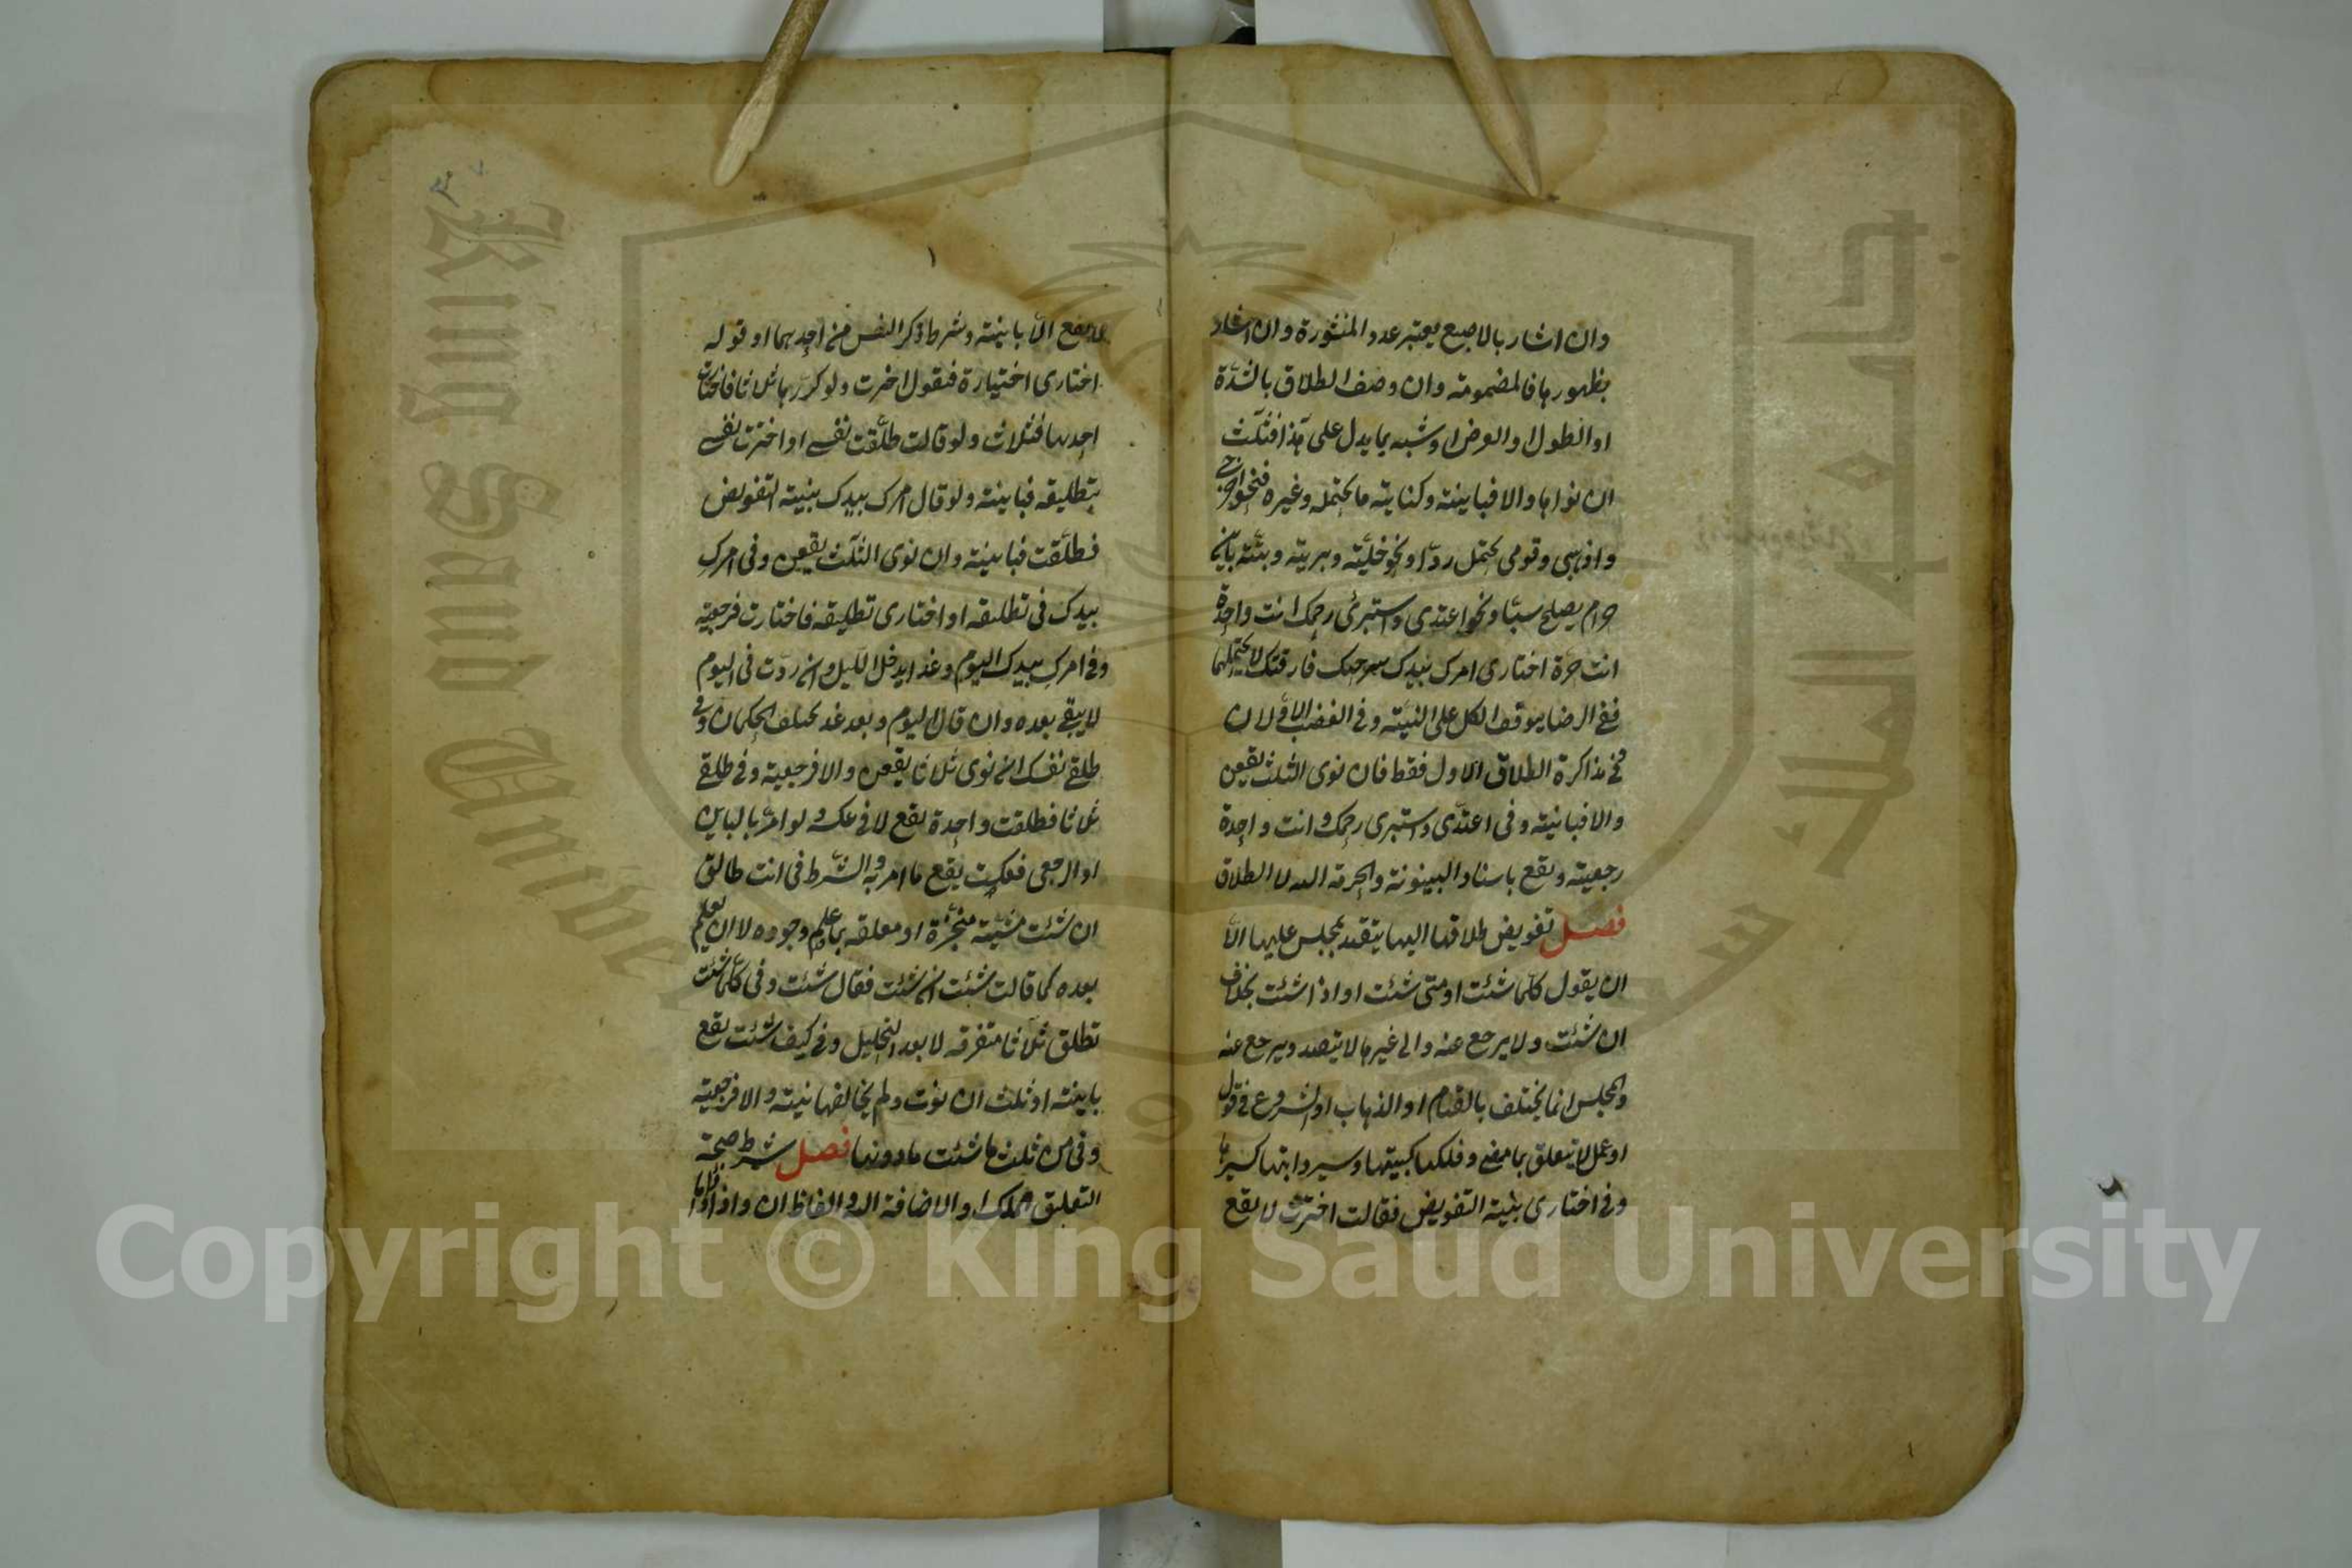 وان اشار بالاصبع يعتبر عدد المنشورة وان اشار
بظهورها فالمضمومة وان وصف الطلاق بالشدّة
او الطول او العرض او شبه بما يدل على هذا فثلث
ان نواها والا فباينة وكناية ما يحتمله وغيره فنحو اخرجي
واذهبي وقومي يحتمل ردّا ونحو خليّة وبرية وبتّة باين
حرام يصلح سبّا ونحو اعتدى واستبرئ رحمك انت واحدة
انت حرّة اختارى امرك بيدك سرحتك فارقتك لا يحتملهما
ففي الرضا يتوقف الكل على النيّة وفي الغضب الاولان
وفي مذاكرة الطلاق الاول فقط فان نوى الثلث يقعن
والا فباينة وفى اعتدّى واستبرى رحمك وانت واحدة
رجعية ويقع باسناد البينونة والحرمة اليه لا الطلاق
فصل تفويض طلاقها اليها يتقيد بمجلس علمها الّا
ان يقول كلّما شئت او متى شئت او اذا شئت بخلاف
ان شئت ولا يرجع عنه والى غيرها لا يتقيد ويرجع عنه
والمجلس انما يختلف بالقيام او الذهاب او الشروع في قول
او عمل لا يتعلق بما مضى وفلكها كبيتها وسير دابتها كسيرها
وفي اختارى بنية التفويض فقالت اخترت لا يقع
يقع الّا باينة وشرط ذكر النفس من احدهما او قوله
اختارى اختيارة فتقول اخترت ولو كررها ثلاثا فاختارت
احديها فثلاث ولو قالت طلّقت نفسي او اخترت نفسي
بتطليقة فباينة ولو قال امرك بيدك بنية التفويض
فطلّقت فباينة وان نوى الثلث يقعن وفى امرك
بيدك في تطليقة او اختارى تطليقة فاختارت فرجعية
وفي امرك بيدك اليوم وغدا يدخل الليل وان ردّت في اليوم
لا يبقى بعده وان قال اليوم وبعد غد يختلف الحكمان وفي
طلقي نفسك ان نوى ثلاثا يقعن والا فرجعية وفي طلقي
ثلاثا فطلقت واحدة يقع لا في عكسه ولو امر بالباين
او الرجعى فعكست يقع ما امر به والشرط في انت طالق
ان شئت مشيّة منجّزة او معلقة بما علم وجوده لا ان يعلم
بعده كما قالت شئت ان شئت فقال شئت وفى كلّما شئت
تطلق ثلاثا متفرقة لا بعد التحليل وفي كيف شئت يقع
باينة او ثلث ان نوت ولم يخالفها نيته والا فرجعية
وفى من ثلث ما شئت ما دونها فصل شرط صحّة
التعليق الملك او الاضافة اليه والفاظه ان واذا
Copyright © King Saud University
King Saud University